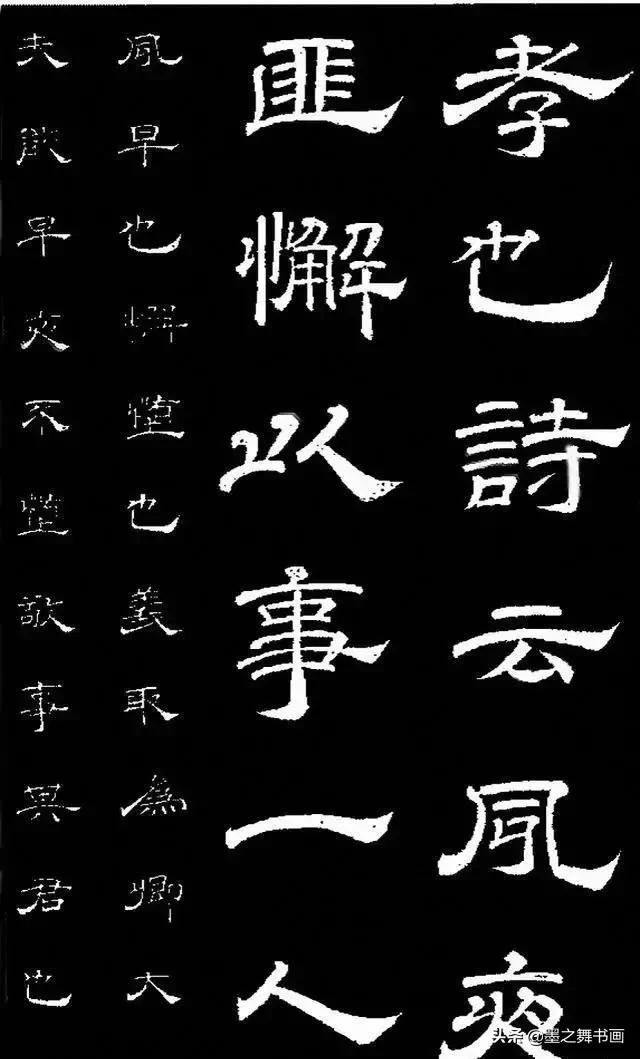 孝也詩云夙夜
匪懈以事一人
夙早也懈惰也義取為卿大
夫能早夜不惰敬事其君也
头条 @墨之舞书画